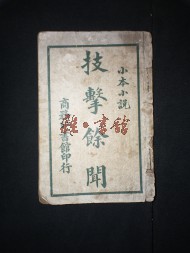 小本小說
技擊餘聞
商務印書館印行